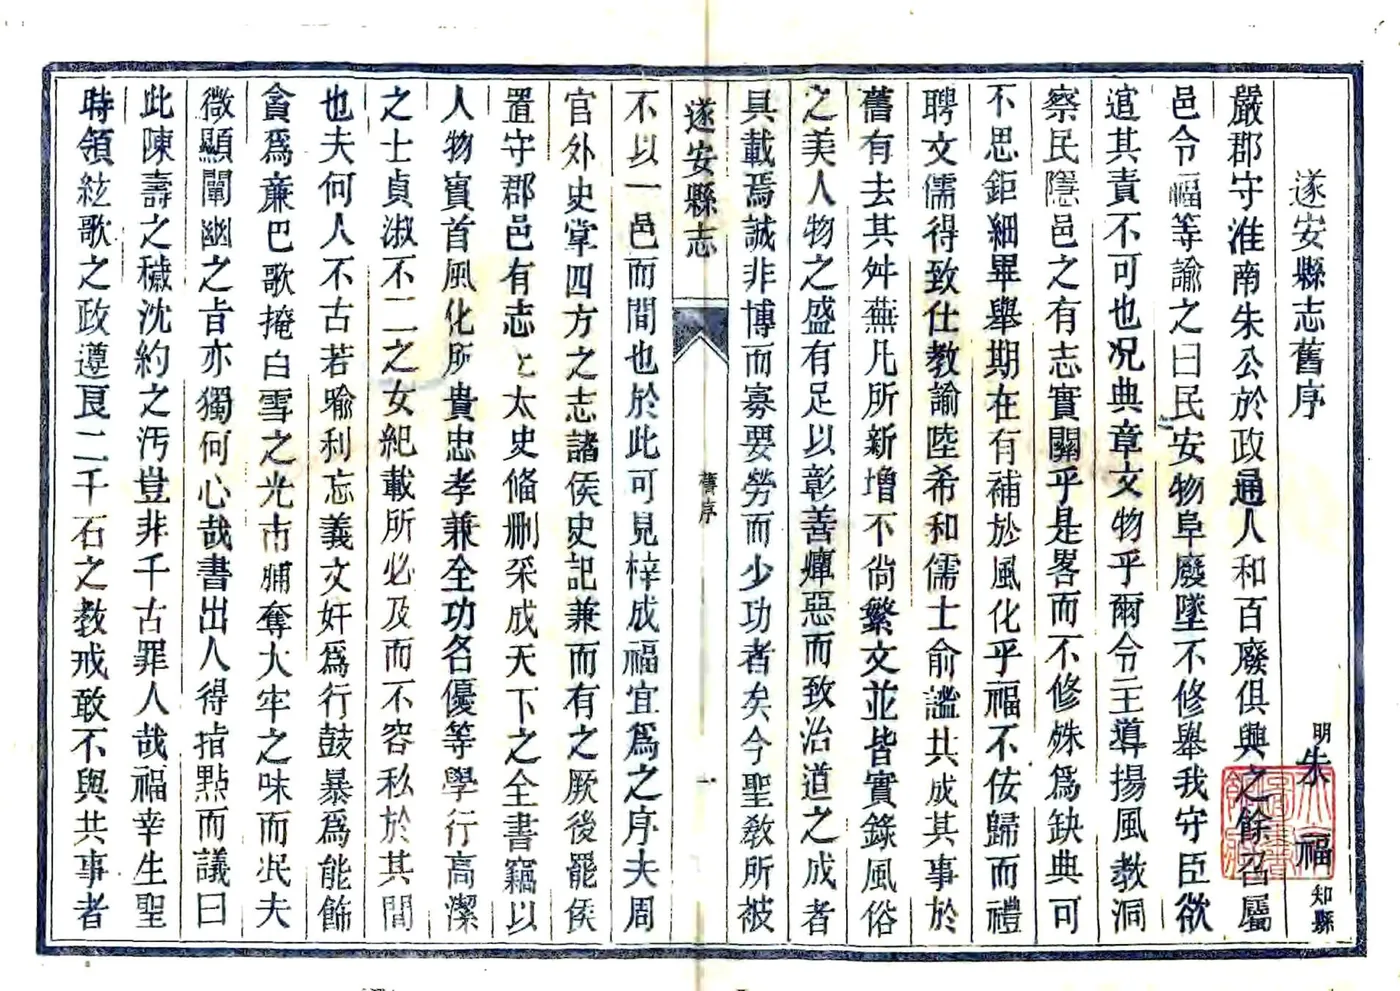 遂安縣志舊序
明朱福知縣
嚴郡守淮南朱公於政通人和百廢俱興之餘召屬
邑令福等諭之曰民安物阜廢墜不修舉我守臣欲
逭其責不可也况典章文物乎爾令主導揚風教洞
察民隱邑之有志實關乎是畧而不修殊爲缺典可
不思鉅細畢舉期在有補於風化乎福不佞歸而禮
聘文儒得致仕教諭陸希和儒士俞謐共成其事於
舊有去其舛蕪凡所新增不尙繁文並皆實錄風俗
之美人物之盛有足以彰善癉惡而致治道之成者
具載焉誠非博而寡要勞而少功者矣今聖教所被
遂安縣志
舊序
一
不以一邑而間也於此可見梓成福宜爲之序夫周
官外史掌四方之志諸侯史記兼而有之厥後罷侯
置守郡邑有志上太史脩刪采成天下之全書竊以
人物實首風化所貴忠孝兼全功名優等學行高潔
之士貞淑不二之女紀載所必及而不容私於其間
也夫何人不古若喻利忘義文奸爲行鼓暴爲能飾
貪爲廉巴歌掩白雪之光市脯奪大牢之味而泯夫
微顯闡幽之旨亦獨何心哉書出人得指點而議曰
此陳壽之穢沈約之汚豈非千古罪人哉福幸生聖
時領絃歌之政遵良二千石之教戒敢不與共事者